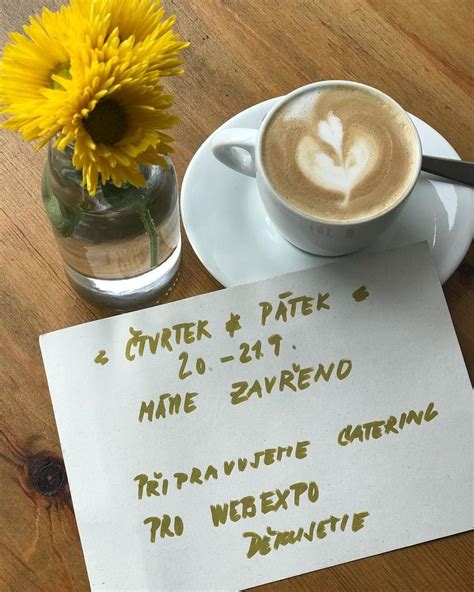 « ČTVRTEK * PÁTEK «
20. - 21.9.
MÁME ZAVŘENO
PŘIPRAVUJEME CATERING
PRO WEBEXPO
DĚKUJEME